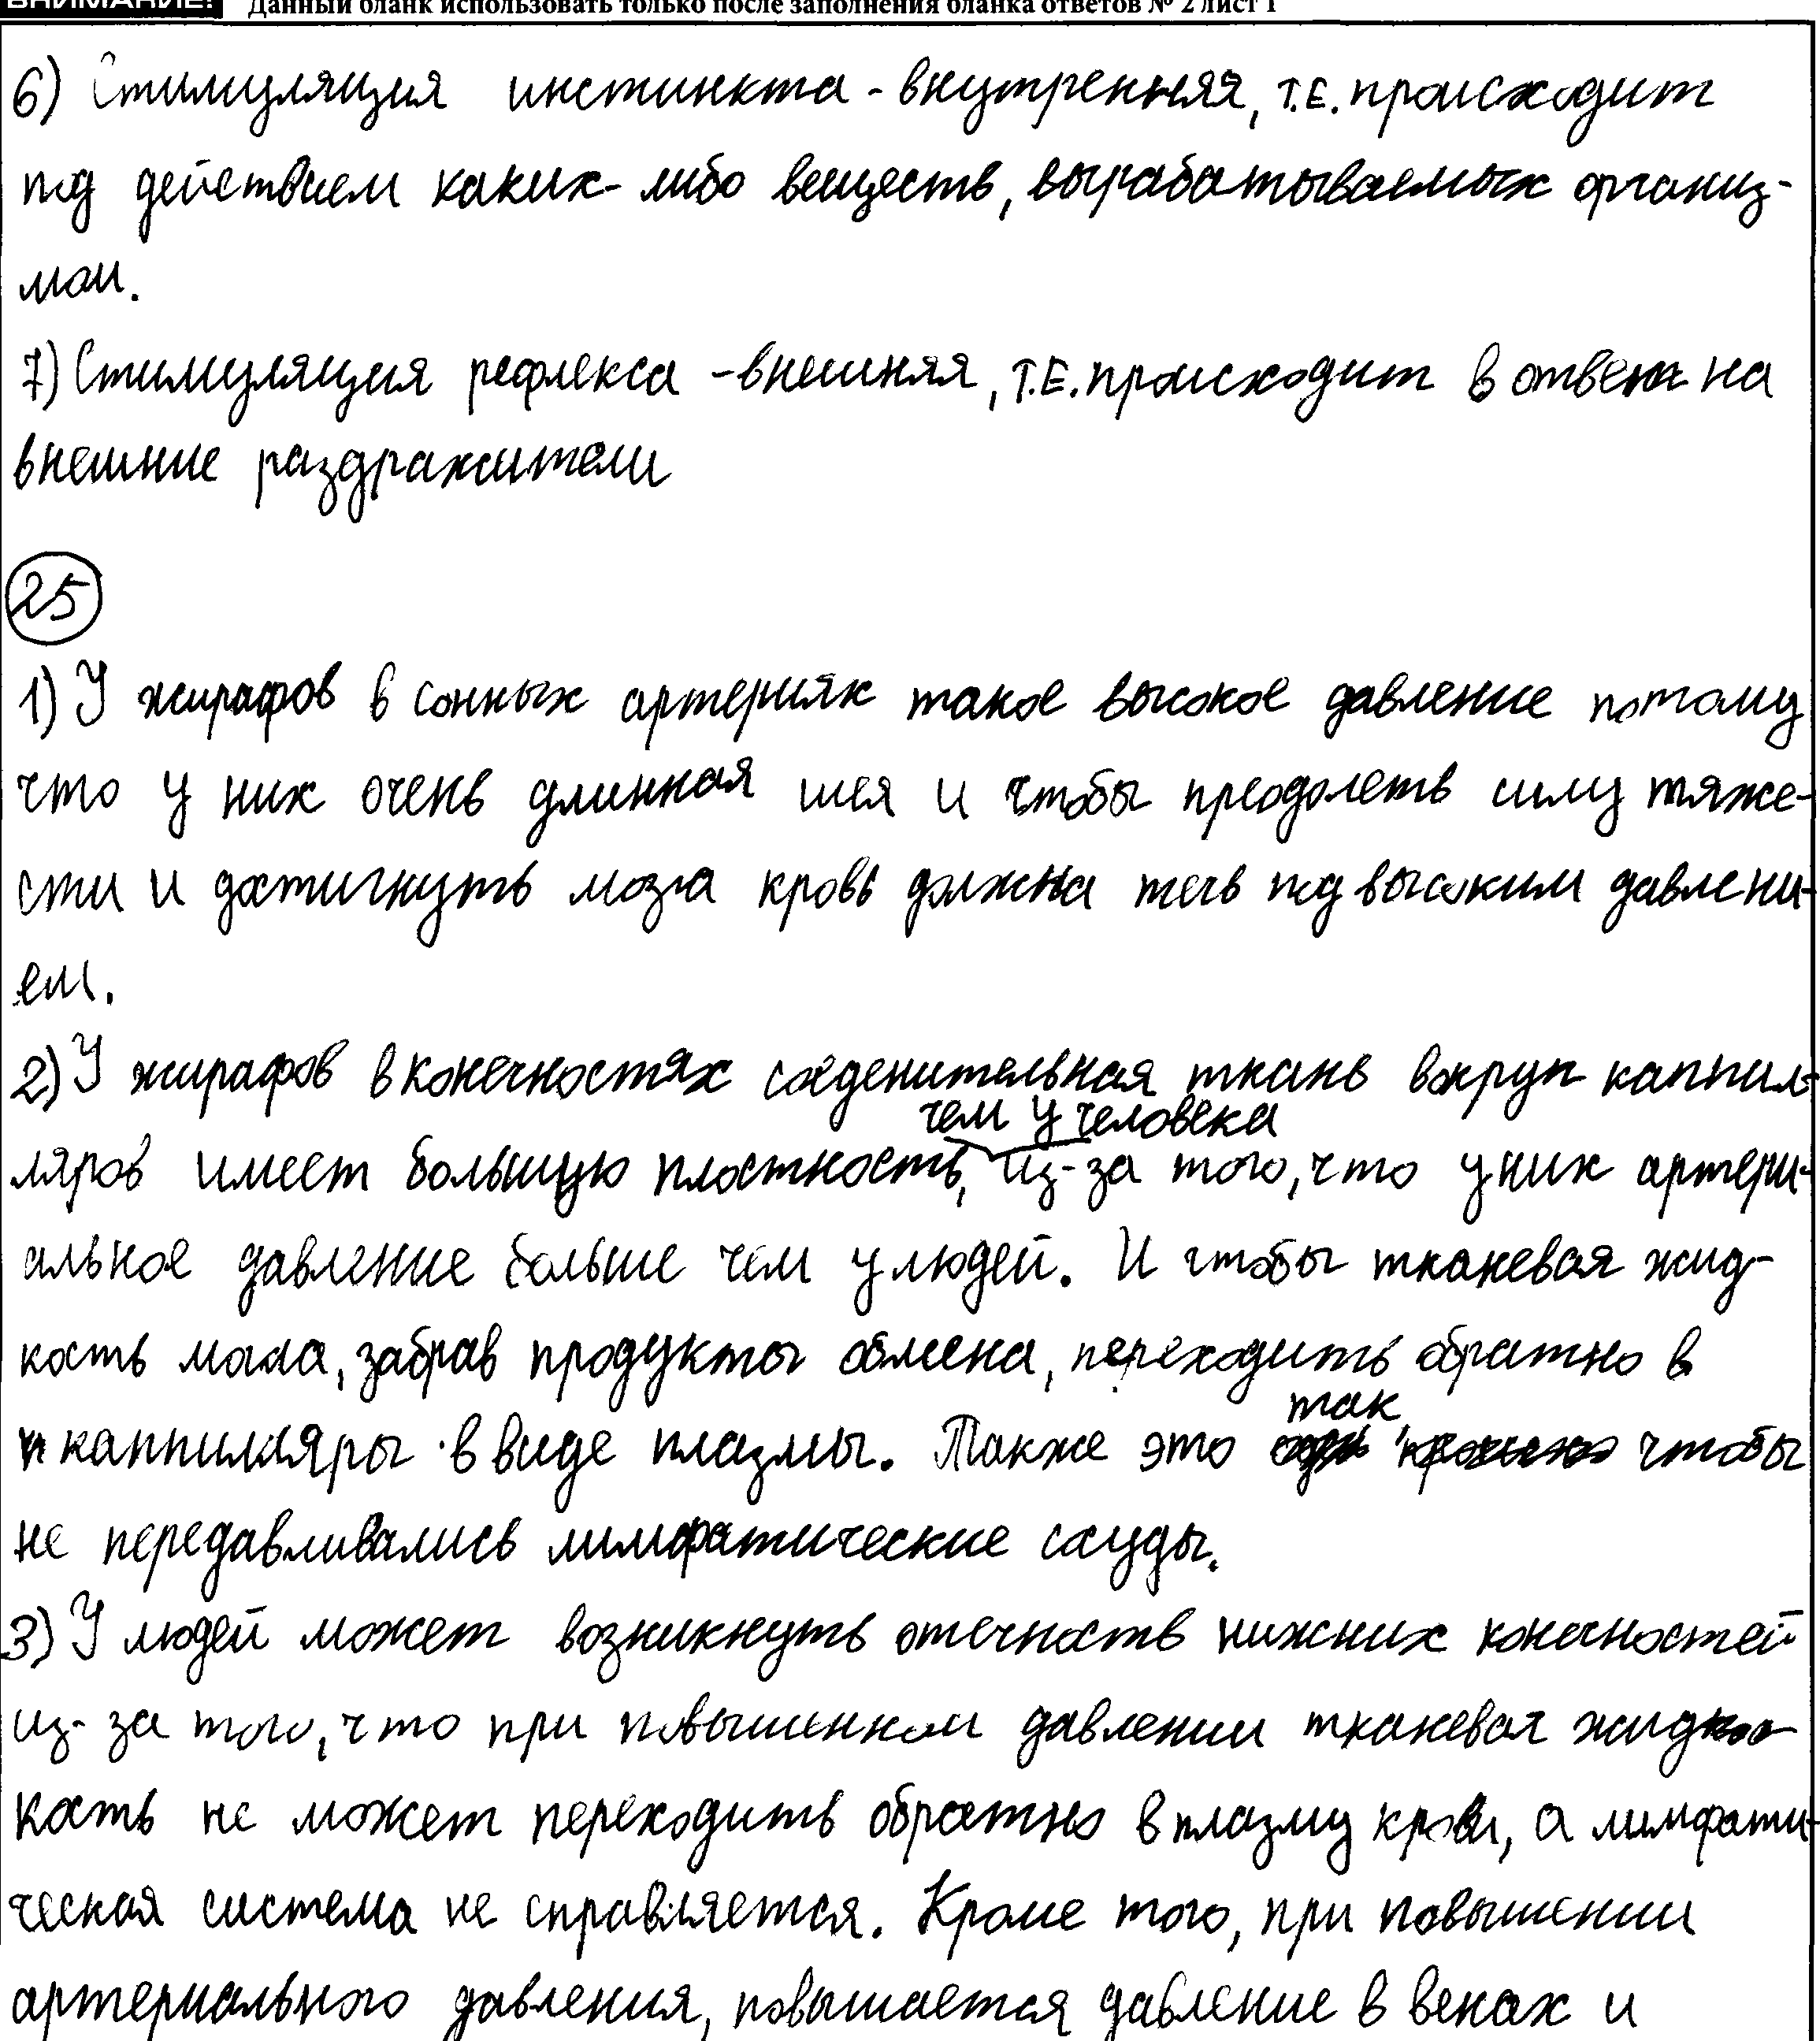 ВНИМАНИЕ! Данный бланк использовать только после заполнения бланка ответов № 2 лист 1
6) Стимуляция инстинкта - внутренняя, т.е. происходит
под действием каких-либо веществ, вырабатываемых организ-
мом.
7) Стимуляция рефлекса - внешняя, т.е. происходит в ответ на
внешние раздражители
25
1) У жирафов в сонных артериях такое высокое давление потому
что у них очень длинная шея и чтобы преодолеть силу тяже-
сти и достигнуть мозга кровь должна течь под высоким давлени-
ем.
2) У жирафов в конечностях соеденительная ткань вокруг каппил-
чем у человека
ляров имеет большую плотность, из-за того, что у них артери-
альное давление больше чем у людей. И чтобы тканевая жид-
кость могла, забрав продукты обмена, переходить обратно в
каппилляры в виде плазмы. Также это так чтобы
не передавливались лимфатические сауды.
3) У людей может возникнуть отечность нижних конечностей
из-за того, что при повышенном давлении тканевая жид
кость не может переходить обратно в плазму крови, а лимфати-
ческая система не справляется. Кроме того, при повышении
артериального давления, повышается давление в венах и